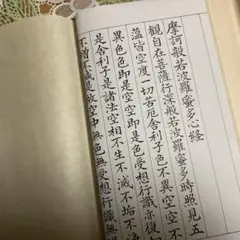 摩訶般若波羅蜜多心経
観自在菩薩行深般若波羅蜜多時照見五
蘊皆空度一切苦厄舎利子色不異空空不
異色色即是空空即是色受想行識亦復如
是舎利子是諸法空相不生不滅不垢不
不増不減是故空中無色無受想行識